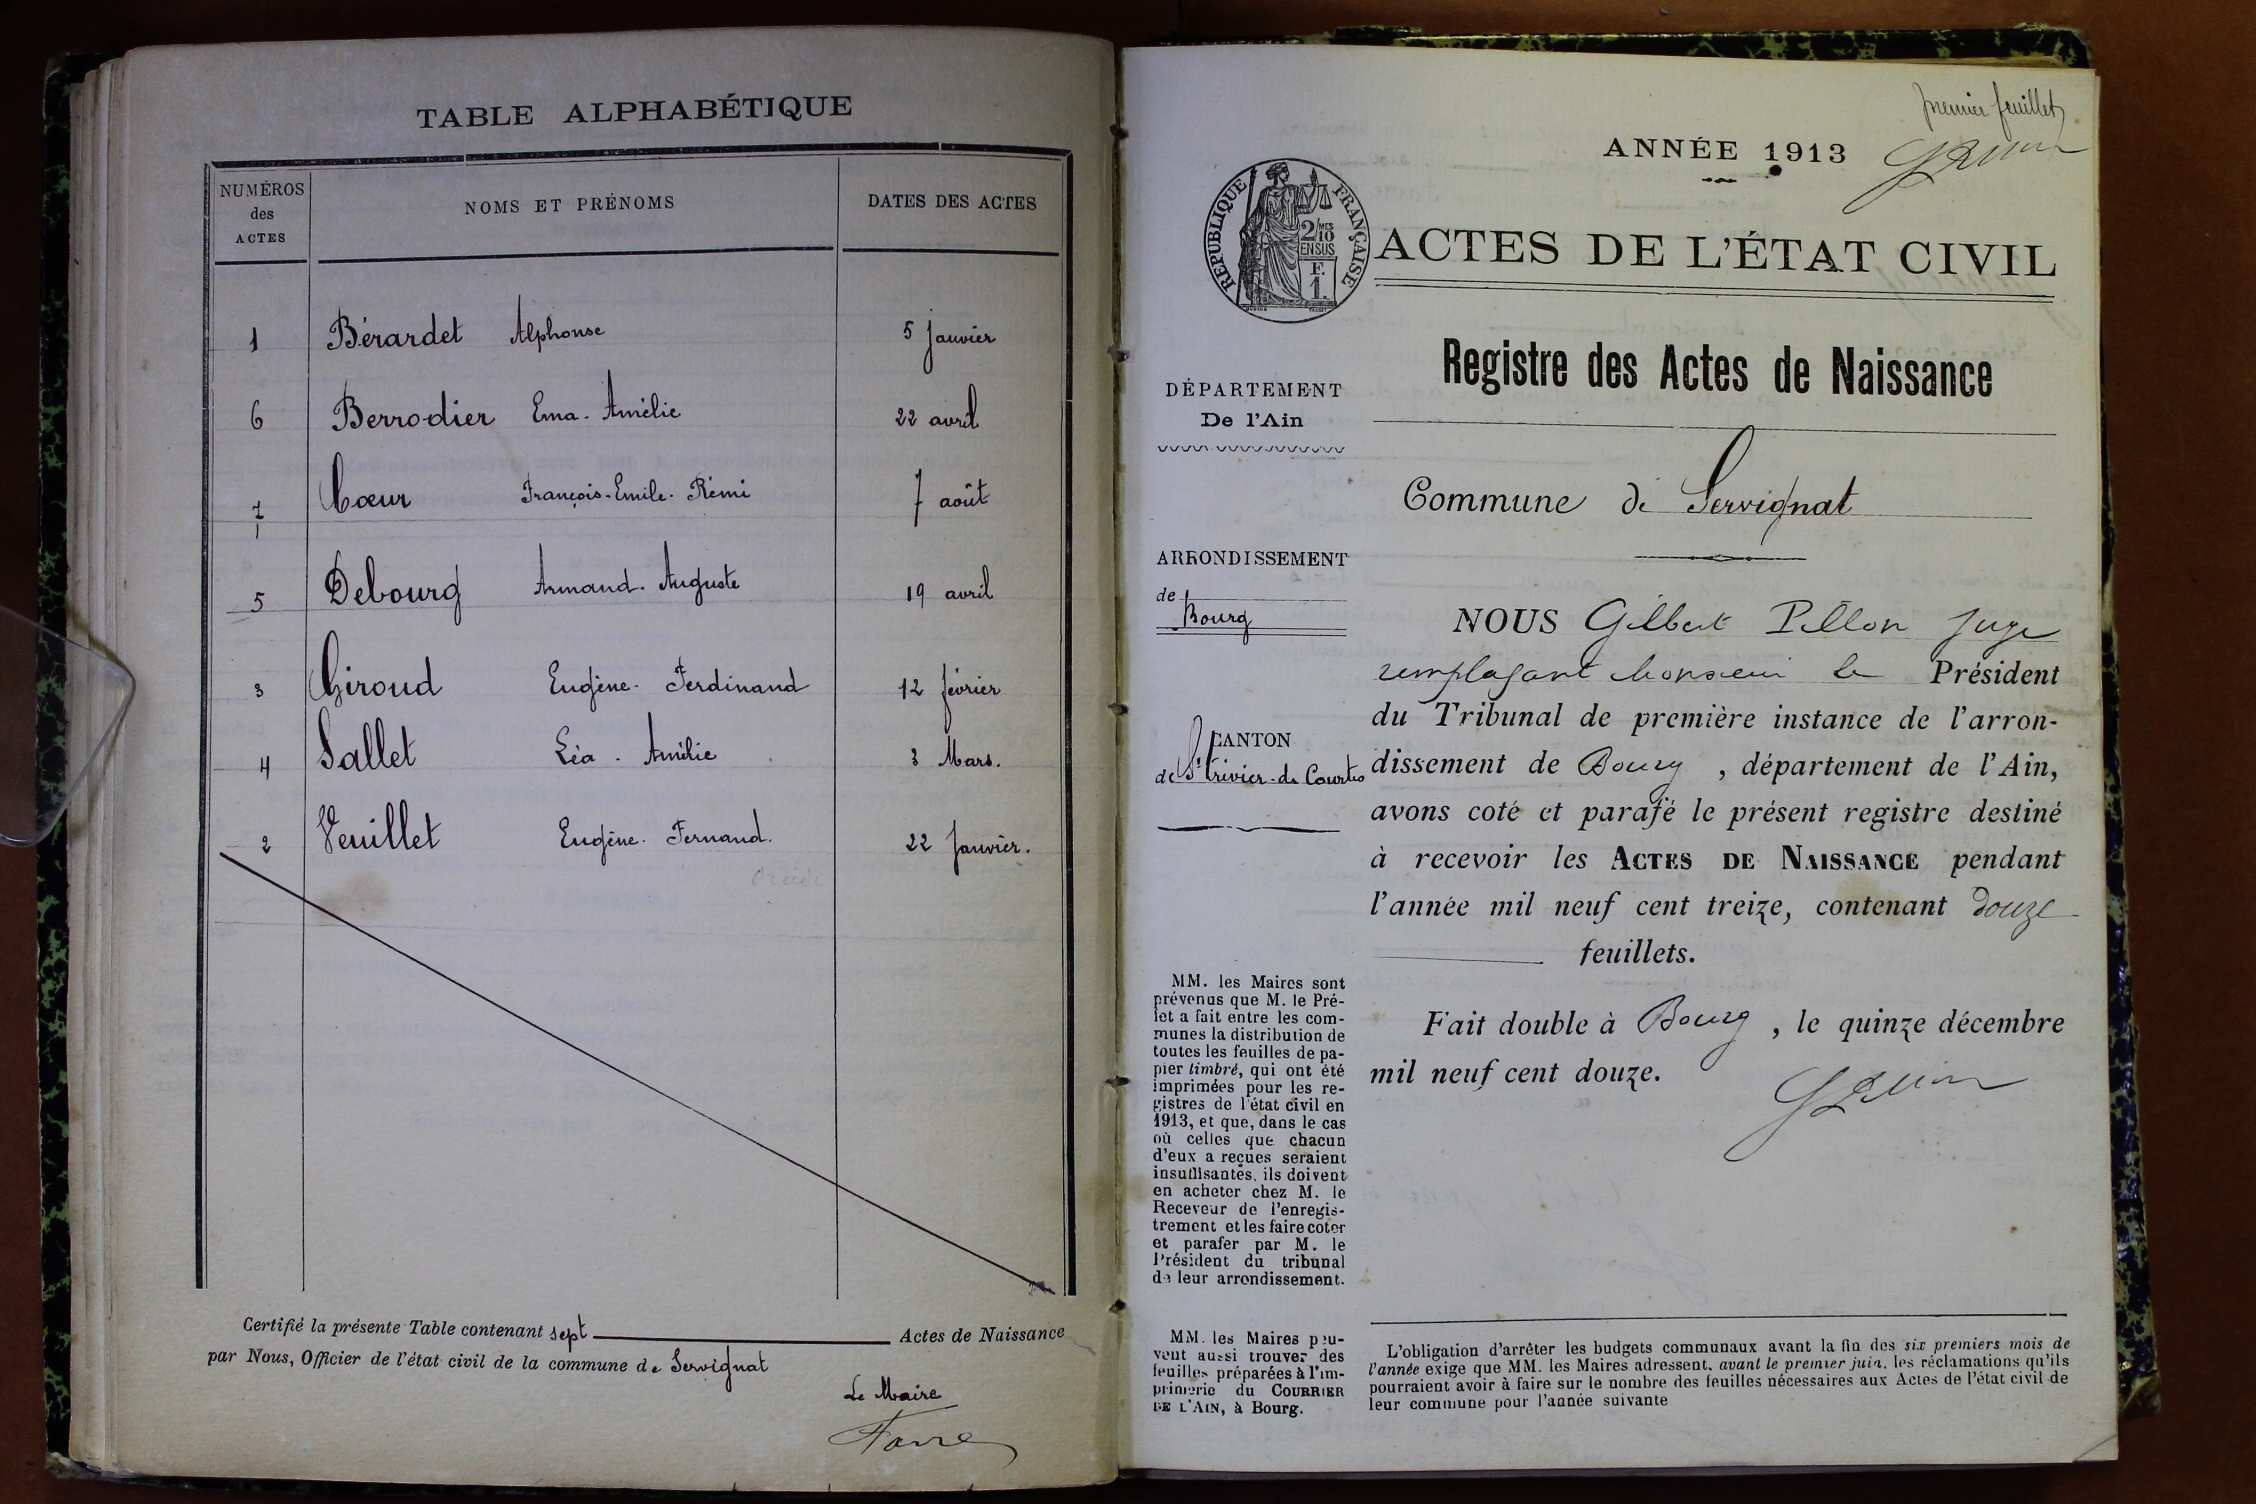 TABLE ALPHABÉTIQUE
NUMÉROS
des
ACTES
NOMS ET PRÉNOMS
DATES DES ACTES
1 Bérardet Alphonse 5 janvier
6 Berrodier Ema-Amélie 22 avril
7 Cœur François-Emile-Rémi 7 août
5 Debourg Armand-Auguste 19 avril
3 Giroud Eugène-Ferdinand 12 février
4 Sallet Léa-Amélie 3 Mars.
2 Veuillet Eugène-Fernand. 22 Janvier.
Certifié la présente Table contenant sept Actes de Naissance
par Nous, Officier de l'état civil de la commune de Servignat
Le Maire
Favre
premier feuillet
ANNÉE 1913
RÉPUBLIQUE FRANÇAISE
2/10 MES
EN SUS
F.
1.
ACTES DE L'ÉTAT CIVIL
Registre des Actes de Naissance
DÉPARTEMENT
De l'Ain
Commune de Servignat
ARRONDISSEMENT
de
Bourg
CANTON
de St Trivier-de Courtes
NOUS Gilbert Pillon Juge
remplaçant Monsieur le Président
du Tribunal de première instance de l'arron-
dissement de Bourg, département de l'Ain,
avons coté et parafé le présent registre destiné
à recevoir les ACTES DE NAISSANCE pendant
l'année mil neuf cent treize, contenant douze
feuillets.
Fait double à Bourg, le quinze décembre
mil neuf cent douze.
MM. les Maires sont
prévenus que M. le Pré-
fet a fait entre les com-
munes la distribution de
toutes les feuilles de pa-
pier timbré, qui ont été
imprimées pour les re-
gistres de l'état civil en
1913, et que, dans le cas
où celles que chacun
d'eux a reçues seraient
insuffisantes, ils doivent
en acheter chez M. le
Receveur de l'enregis-
trement et les faire coter
et parafer par M. le
Président du tribunal
de leur arrondissement.
MM. les Maires peu-
vent aussi trouver des
feuilles préparées à l'im-
primerie du COURRIER
DE L'AIN, à Bourg.
L'obligation d'arrêter les budgets communaux avant la fin des six premiers mois de
l'année exige que MM. les Maires adressent, avant le premier juin, les réclamations qu'ils
pourraient avoir à faire sur le nombre des feuilles nécessaires aux Actes de l'état civil de
leur commune pour l'année suivante